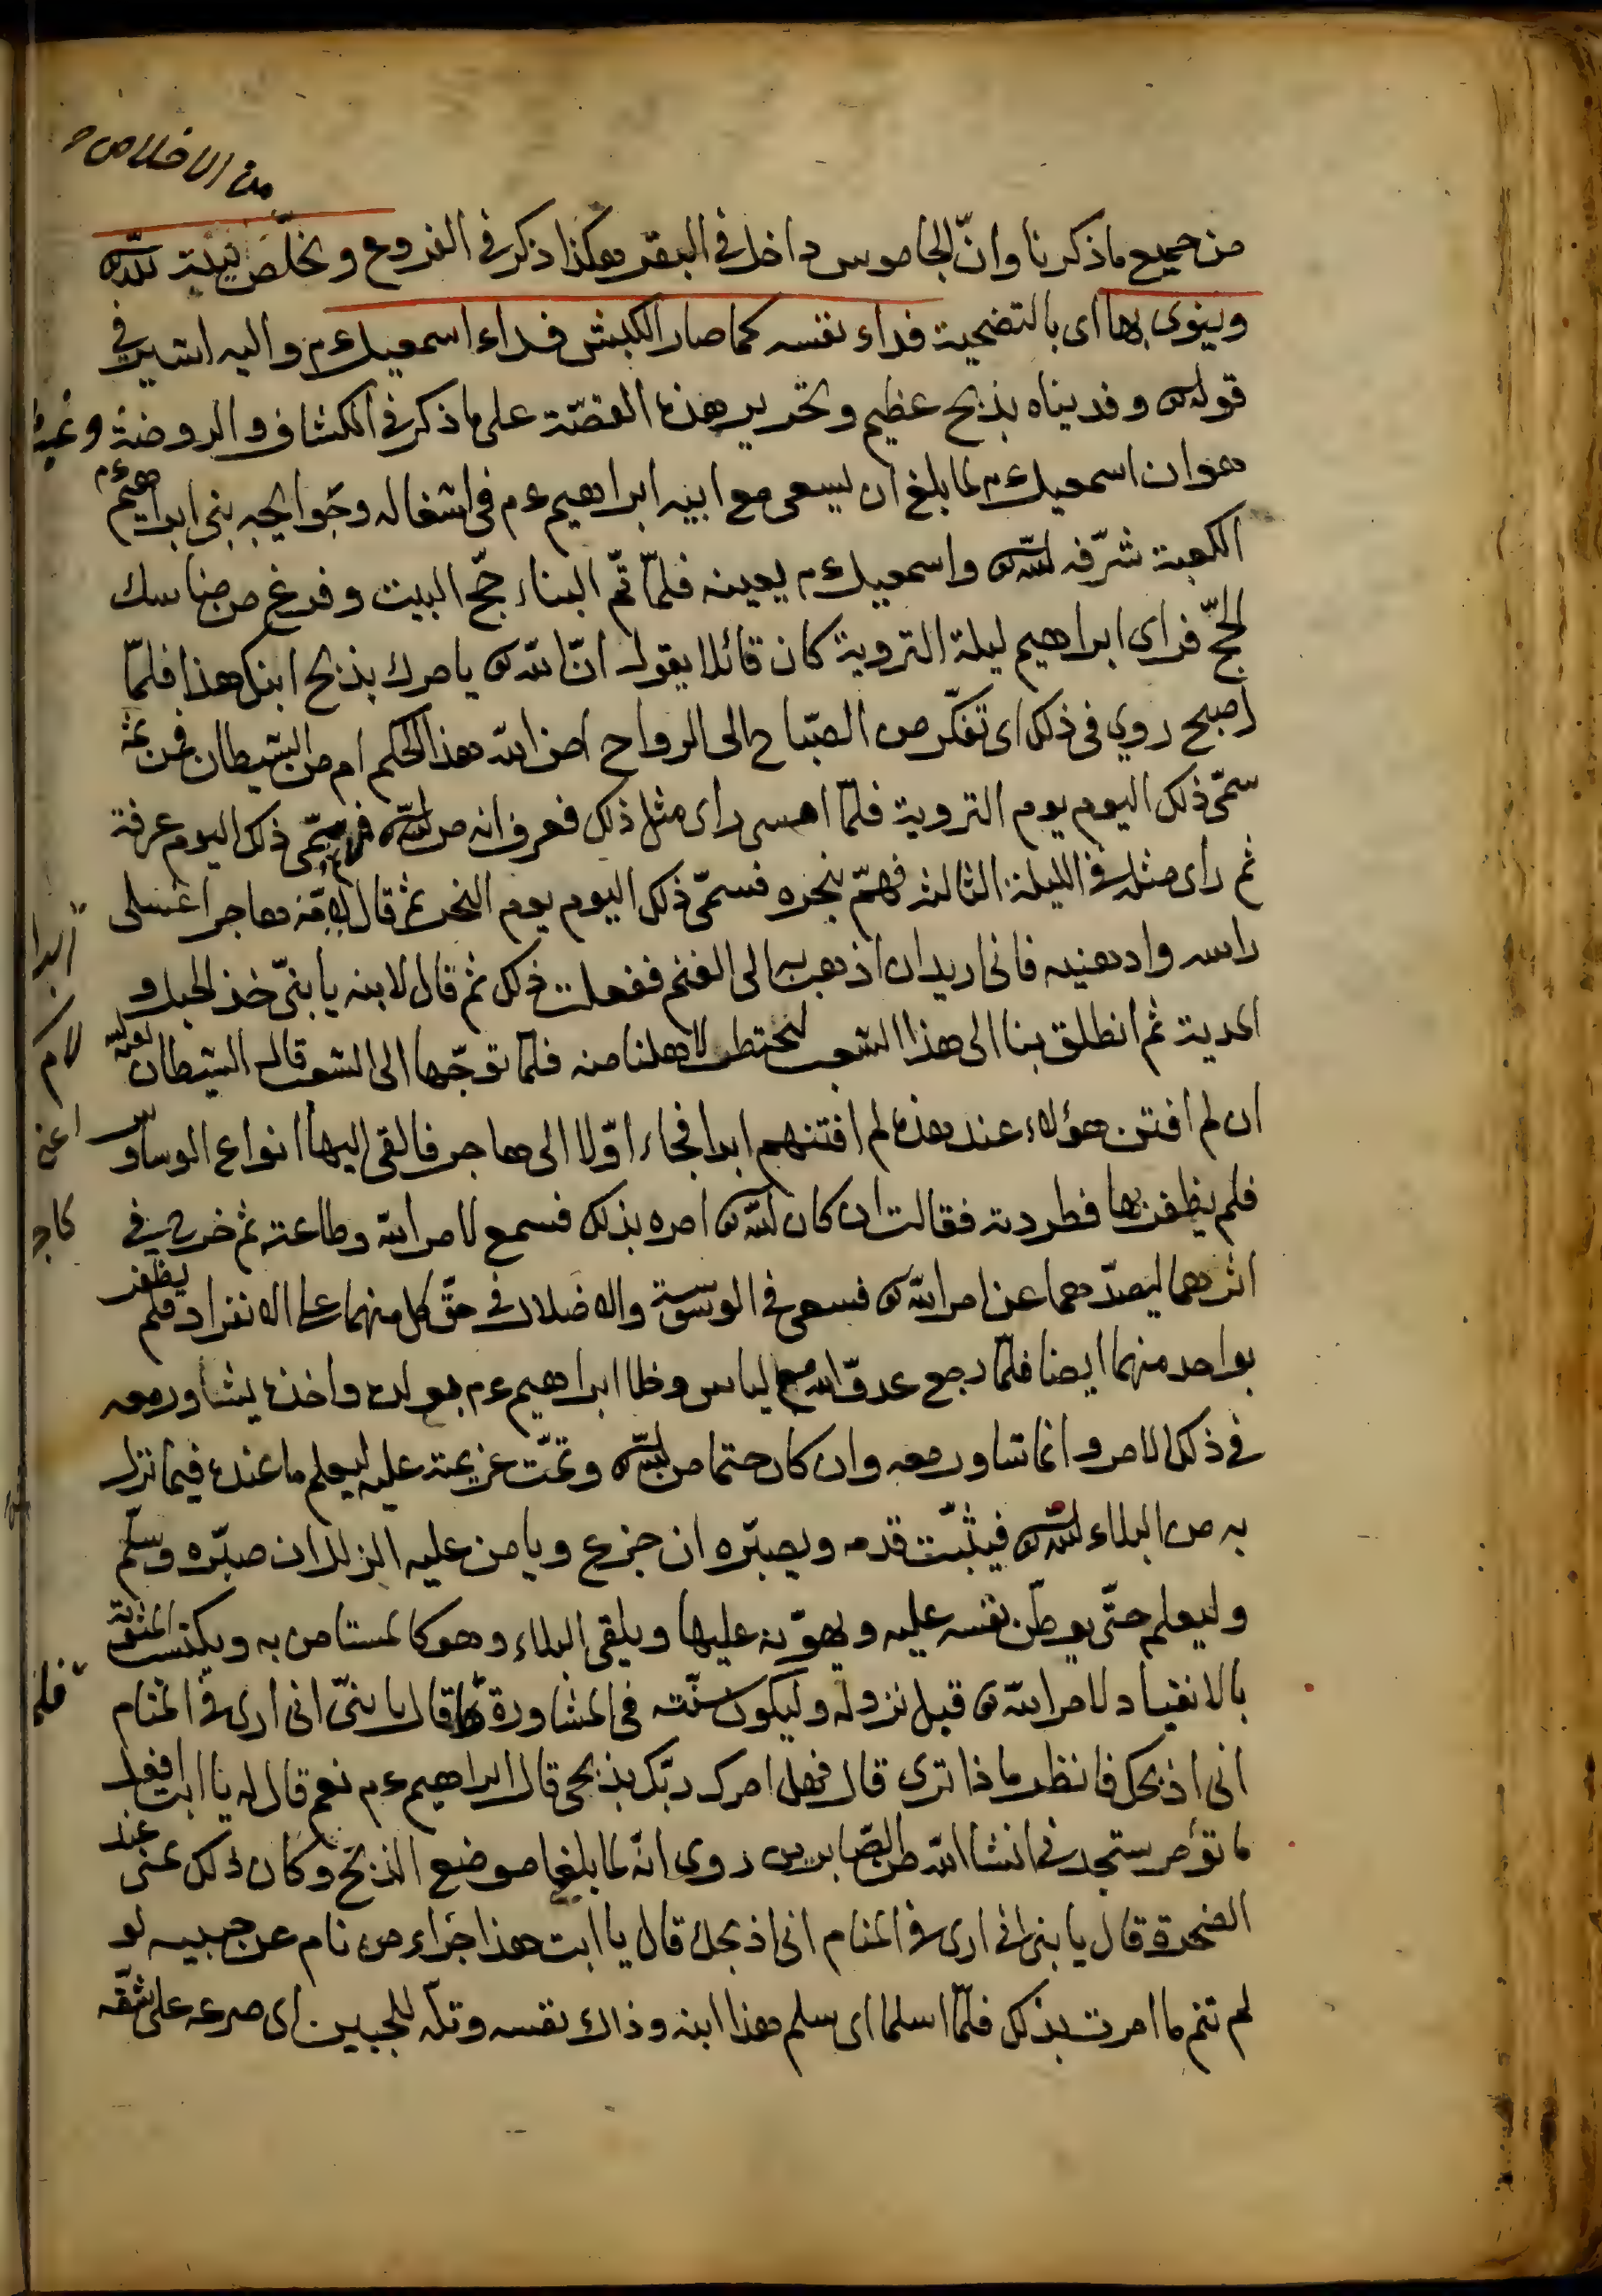 من الاخلاص
من جميع ما ذكرنا وانّ الجاموس داخل في البقر هكذا ذكر في الفروع ويخلّص نيته لله
وينوى بها اى بالتضحية فداء نفسه كما صار الكبش فداء اسمعيل عم واليه اشير في
قوله وفديناه بذبح عظيم وتحرير هذه القصّة على ما ذكر في الكشاف والروضة وغيره
هو ان اسمعيل عم لما بلغ ان يسعى مع ابيه ابراهيم عم في اشغاله وحوايجه بنى ابراهيم عم
الكعبة شرّفه الله واسمعيل عم يعينه فلمّا تمّ البناء حجّ البيت وفرغ من مناسك
الحجّ فراى ابراهيم ليلة التروية كان قائلا يقول انّ الله يامرك بذبح ابنك هذا فلمّا
اصبح روي في ذلك اى تفكّر من الصّباح الى الرواح امن الله هذا الحكم ام من الشيطان فمن ثمّ
سمّى ذلك اليوم يوم التروية فلمّا امسى راى مثل ذلك فعرف انه من الله فمن ثم سمّى ذلك اليوم عرفة
ثم راى مثله في الليلة الثالثة فهمّ بنحره فسمّى ذلك اليوم يوم النحر ثم قال لامّه هاجر اغسلى
راسه وادهنيه فانى اريد ان اذهب به الى الغنم ففعلت ذلك ثم قال لابنه يا بنىّ خذ الحبل و
المدية ثم انطلق بنا الى هذا الشعب لنحتطب لاهلنا منه فلمّا توجّها الى الشعب قال الشيطان لعنه الله
ان لم افتن هؤلاء عند هذه لم افتنهم ابدا فجاء اوّلا الى هاجر فالقى اليها انواع الوساوس
فلم يظفر بها فطردته فقالت ان كان الله امره بذلك فسمع لامر الله وطاعته ثم خرج في
اثرهما ليصدّهما عن امر الله فسعى في الوسوسة والاضلال في حقّ كل منهما على الانفراد فلم يظفر
بواحد منهما ايضا فلمّا رجع عدوّ الله مع الياس وخلا ابراهيم عم بولده واخذه يشاور معه
في ذلك الامر وانما تشاور معه وان كان حتما من الله وتمّت عزيمته عليه ليعلم ما عنده فيما نزل
به من البلاء لله فيثبّت قدمه ويصبّره ان جزع ويامن عليه الزلل ان صبّره وسلّم
وليعلم حتّى يوطّن نفسه عليه ويهوّنه عليها ويلقى البلاء وهو كالمستامن به ويكتسب المثوبة
بالانقياد لامر الله قبل نزوله وليكون سنّته في المشاورة قال يا بنىّ انى ارى في المنام
انى اذبحك فانظر ماذا ترى قال فهل امرك ربّك بذبحى قال ابراهيم عم نعم قال له يا ابت افعل
ما تؤمر ستجدنى انشا الله من الصّابرين روى انّه لما بلغا موضع الذبح وكان ذلك بمنى عند
الصخرة قال يا بنى انى ارى في المنام انى اذبحك قال يا ابت هذا جزاء من نام عن حبيبه لو
لم تنم ما امرت بذلك فلمّا اسلما اى سلم هذا ابنه وذاك نفسه وتلّه للجبين اى صرعه على شقّه